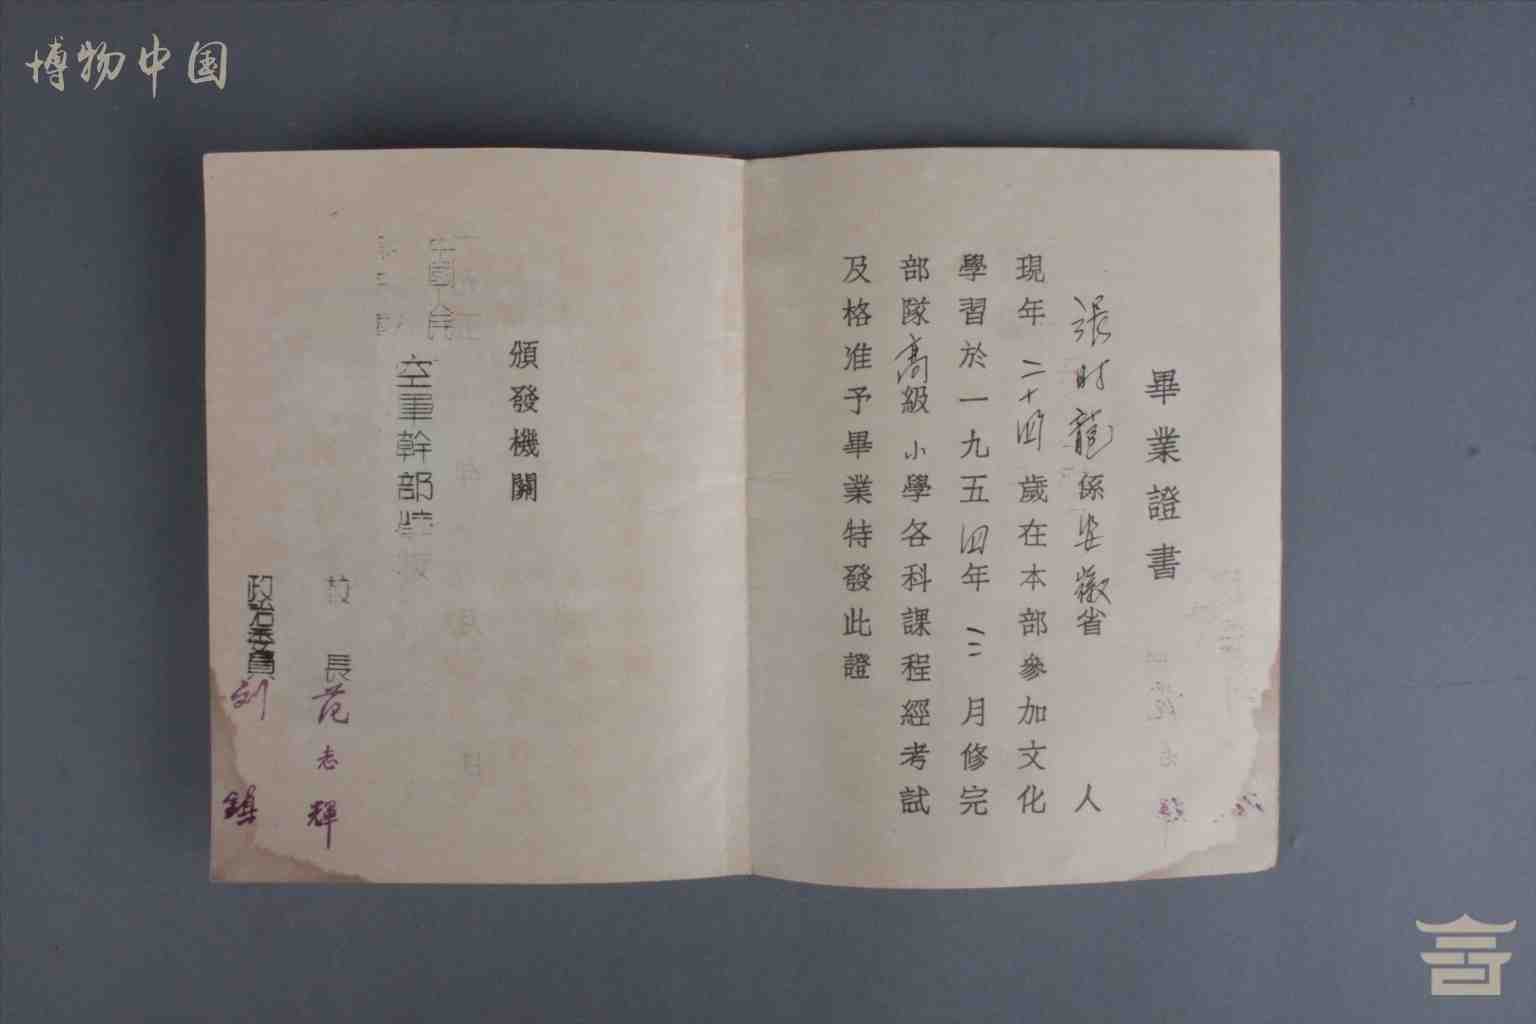 博物中国
畢業證書
張時龍係安徽省人
現年二十四歲在本部參加文化
學習於一九五四年二月修完
部隊高級小學各科課程經考試
及格准予畢業特發此證
頒發機關
空軍幹部
校長范志輝
政治委員刘鎮